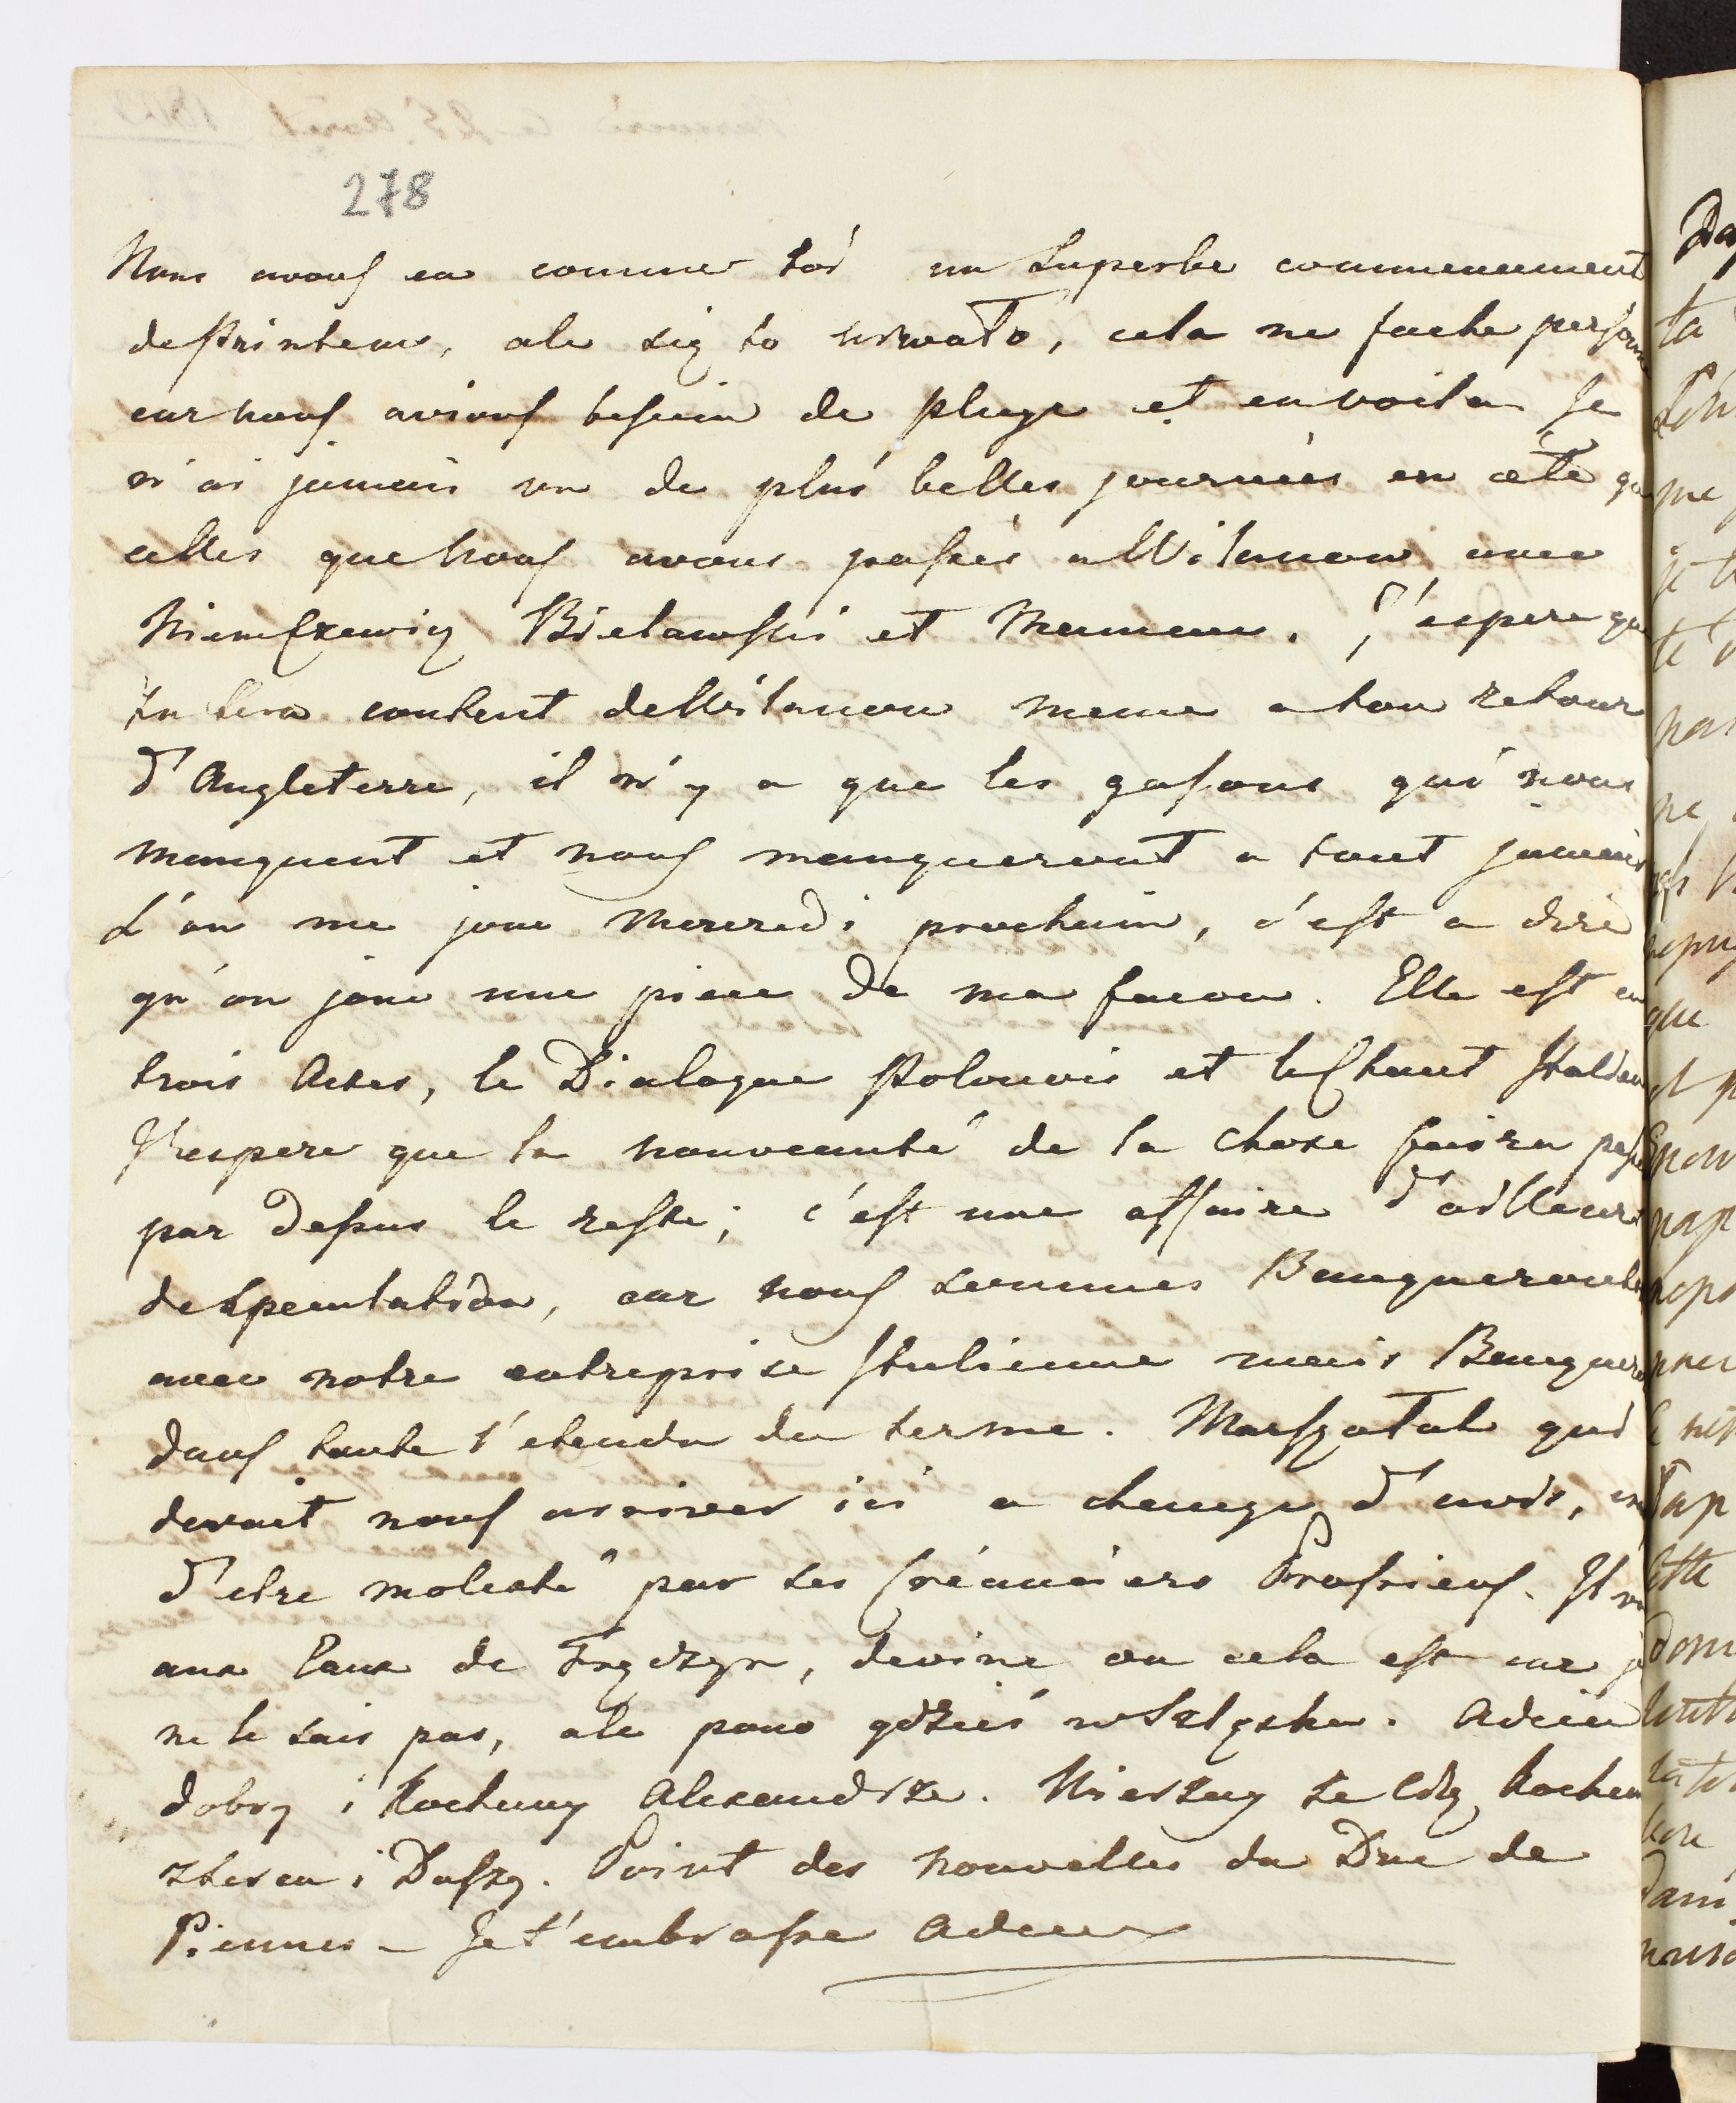 278
Nous avons eu comme toi un Superbe commencement
de Printems, ale się to urwało, cela ne fache persone
car nous avions besoin de pluye et en voila Je
n'ai jamais vu de plus belles journées en été que
celles que nous avons passés a Wilanow avec
Niemcewicz Bielawski et Maman. J'espere que
tu sera content de Wilanow meme a ton retour
d'Angleterre, il n'y a que les gasons qui nous
manquent et nous manqueront a tout jamais
L'on me joue Mercredi prochain, c'est a dire
qu'on joue une piece de ma facon. Elle est en
trois Actes, le Dialogue Polonois et le Chant Italien
J'espere que la nouveauté de la chose faira passer
par dessus le reste; c'est une affaire d'ailleurs
de Speculation, car nous sommes Banqueroute
avec notre entreprise Italienne mais Banquer
dans toute l'etendu du terme. Marszałek qui
devait nous arriver ici a changé d'avis,
d'etre molesté par ses Créanciers Prussiens. Il va
aux Eaux de , devine ou cela est car je
ne le sais pas, ale pono gdzieś w Szlązku. Adieu
dobry i Kochany Alexandrze. Wierzay ze Cię Kocham
z serca i Duszy. Point des nouvelles du Duc de
Piennes – Je t'embrasse Adieu